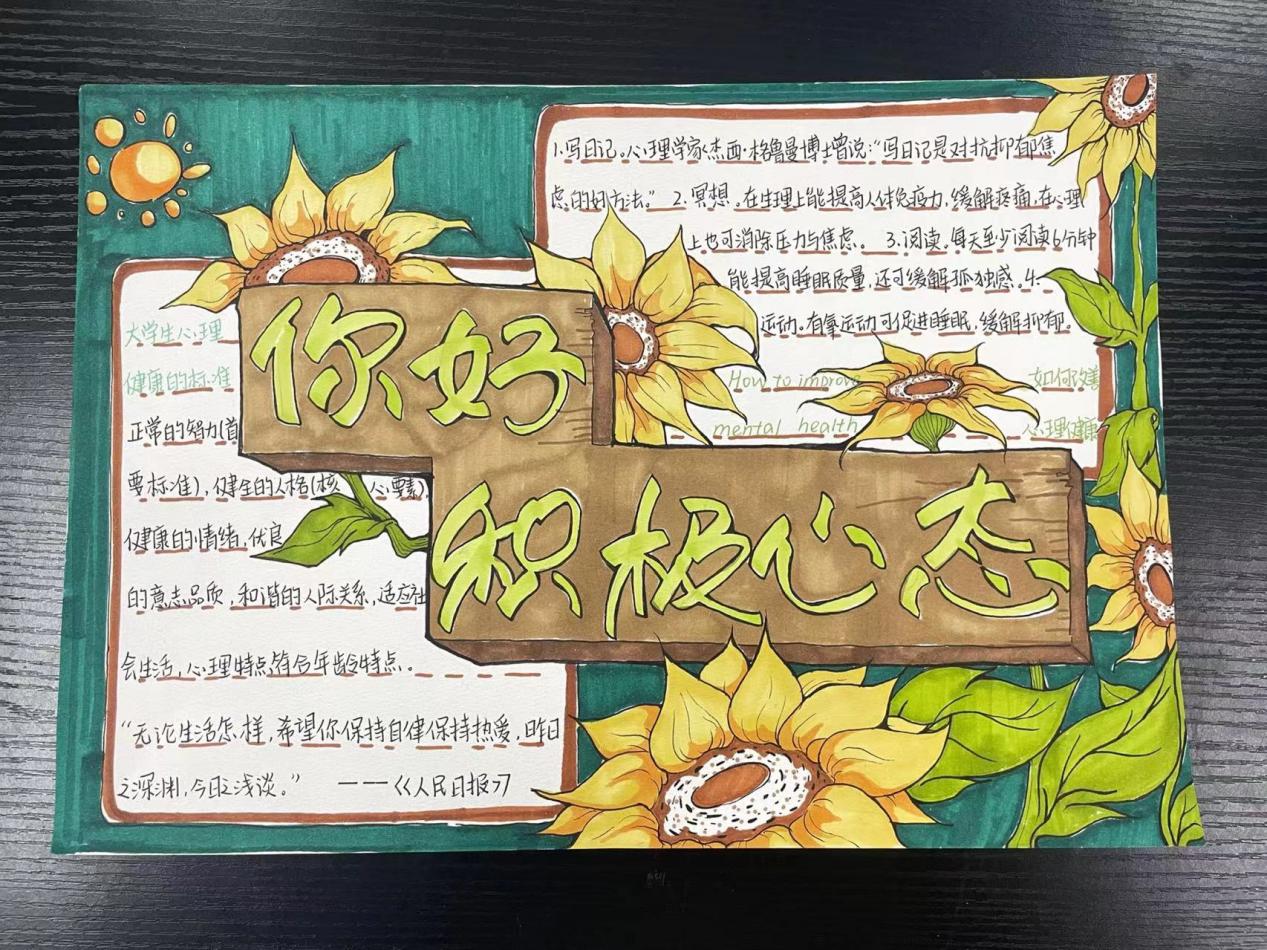 你好
积极心态
1.写日记。心理学家杰西·格鲁曼博士曾说:“写日记是对抗抑郁焦
虑的好方法。” 2.冥想。在生理上能提高人体免疫力,缓解疼痛,在心理
上也可消除压力与焦虑。 3.阅读。每天至少阅读6分钟
能提高睡眠质量,还可缓解孤独感。4.
运动。有氧运动可促进睡眠,缓解抑郁。
How to improve 如何改善
mental health 心理健康
大学生心理
健康的标准
正常的智力(首
要标准),健全的人格(核心要素),
健康的情绪,优良
的意志品质,和谐的人际关系,适应社
会生活,心理特点符合年龄特点。
“无论生活怎样,希望你保持自律保持热爱,昨日
之深渊,今日之浅谈。” ——《人民日报》